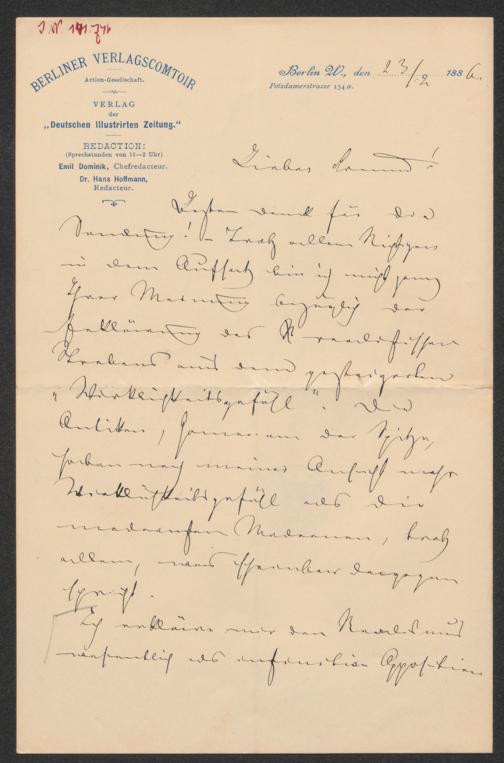 BERLINER VERLAGSCOMTOIR
Actien-Gesellschaft.
VERLAG
der
„Deutschen Illustrirten Zeitung.“
REDACTION:
(Sprechstunden von 11—2 Uhr)
Emil Dominik, Chefredacteur.
Dr. Hans Hoffmann,
Redacteur.
Berlin W., den 23/2 1886.
Potsdamerstrasse 134a.
Lieber Freund!
Besten Dank für die
Sendung! – Trotz allem Richtigen
in dem Aufsatz bin ich nicht ganz
Ihrer Meinung bezüglich der
Erklärung des realistischen
Strebens aus dem gesteigerten
„Wirklichkeitsgefühl“. Die
Antiken, Homer an der Spitze,
haben nach meiner Ansicht mehr
Wirklichkeitsgefühl als die
Modernen, trotz
allem, was scheinbar dagegen
spricht.
Ich erkläre mir den Realismus
wesentlich als Opposition